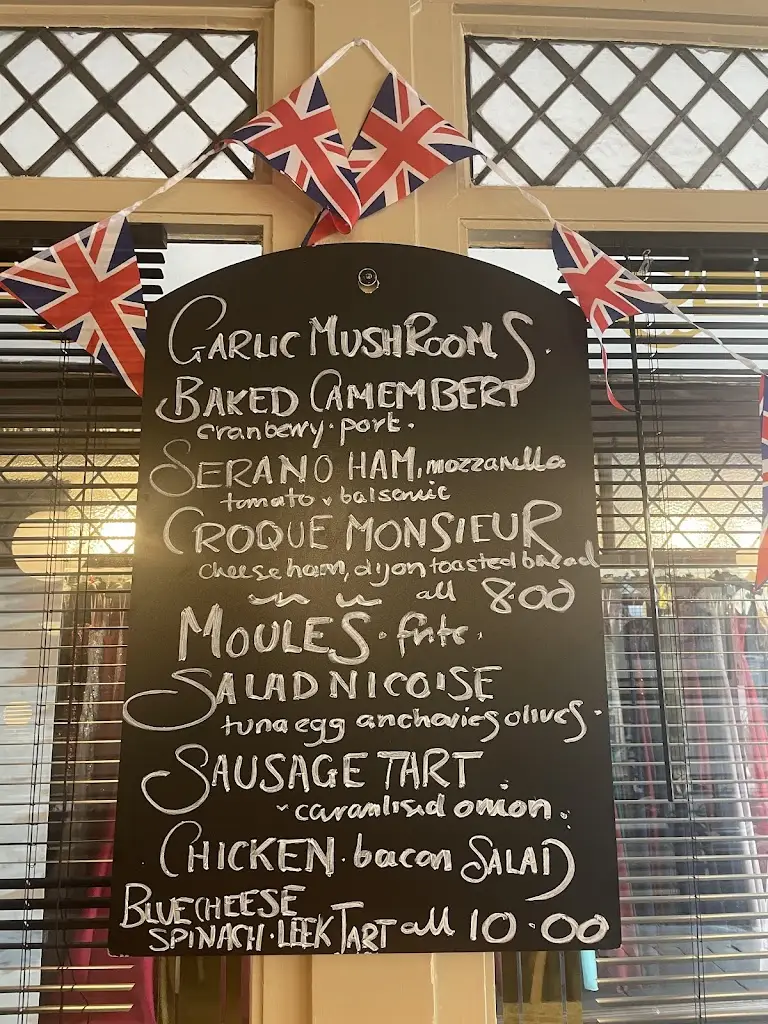 GARLIC MUSHROOMS.
BAKED CAMEMBERT
cranberry. port.
SERANO HAM, mozzarella
tomato v balsomic
CROQUE MONSIEUR
cheese ham, dijon toasted bread
all 8.00
MOULES. frite.
SALAD NICOISE
tuna egg anchovies olives.
SAUSAGE TART
caramlised onion.
CHICKEN. bacon SALAD
BLUE CHEESE
SPINACH. LEEK TART all 10.00